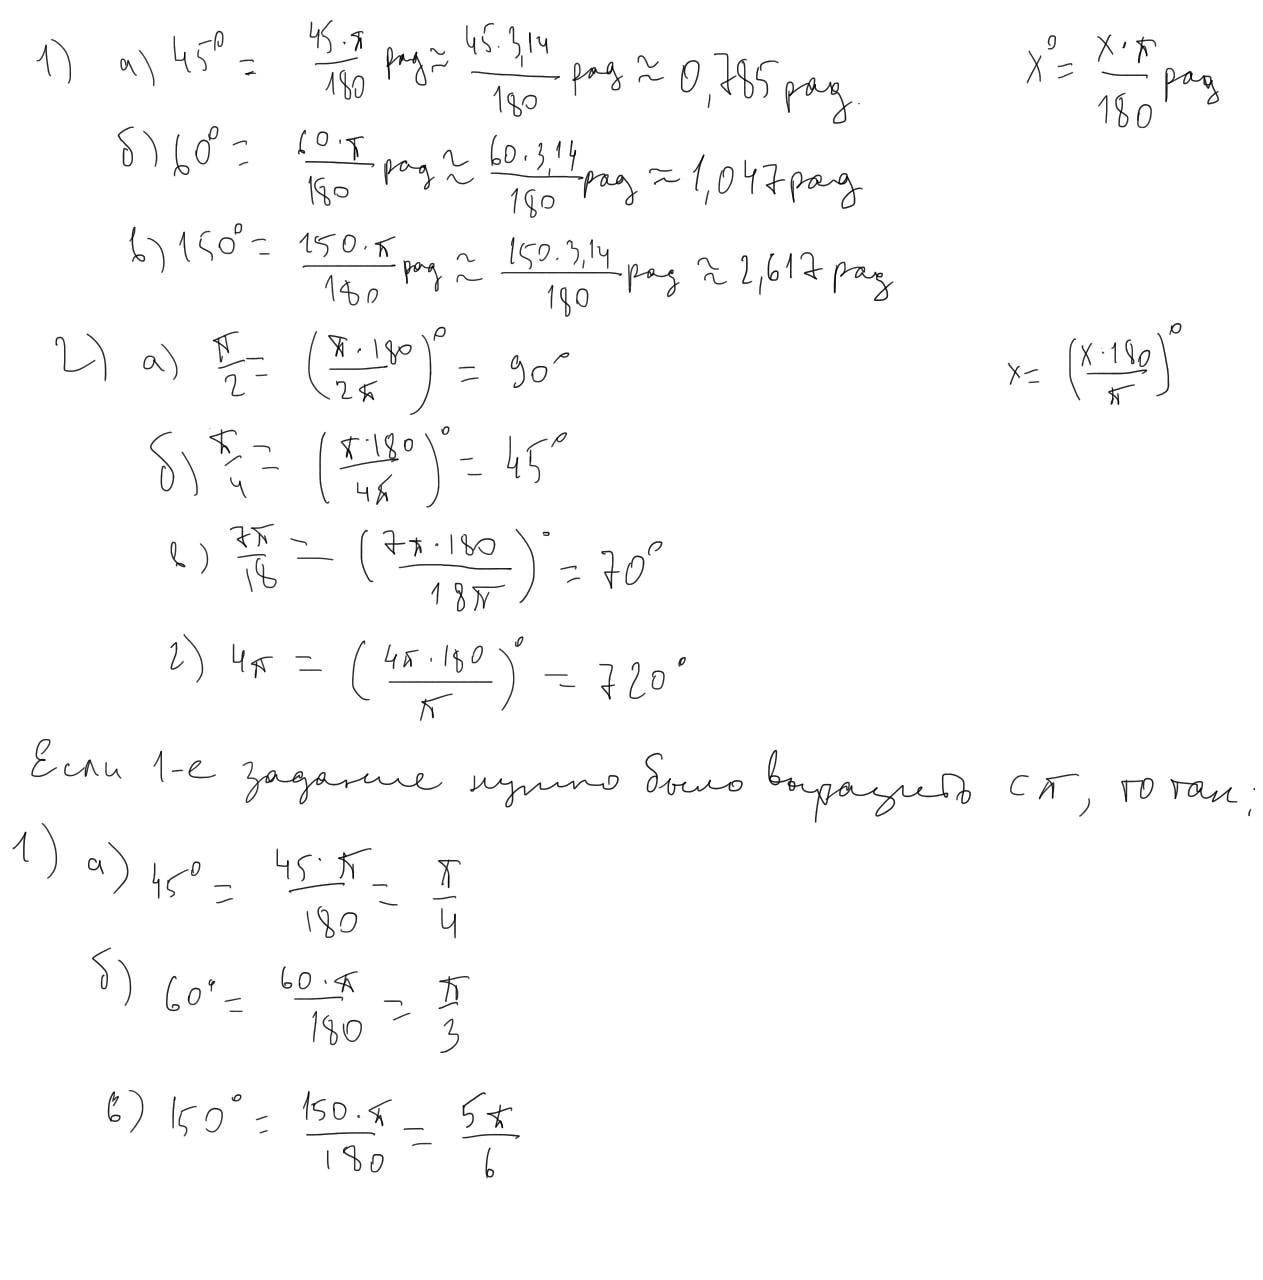 1) а) 45° = 45·π/180 рад ≈ 45·3,14/180 рад ≈ 0,785 рад. x° = x·π/180 рад
б) 60° = 60·π/180 рад ≈ 60·3,14/180 рад ≈ 1,047 рад
в) 150° = 150·π/180 рад ≈ 150·3,14/180 рад ≈ 2,617 рад
2) а) π/2 = (π·180/2π)° = 90° x = (x·180/π)°
б) π/4 = (π·180/4π)° = 45°
в) 7π/18 = (7π·180/18π)° = 70°
г) 4π = (4π·180/π)° = 720°
Если 1-е задание нужно было выразить с π, то так:
1) а) 45° = 45·π/180 = π/4
б) 60° = 60·π/180 = π/3
в) 150° = 150·π/180 = 5π/6